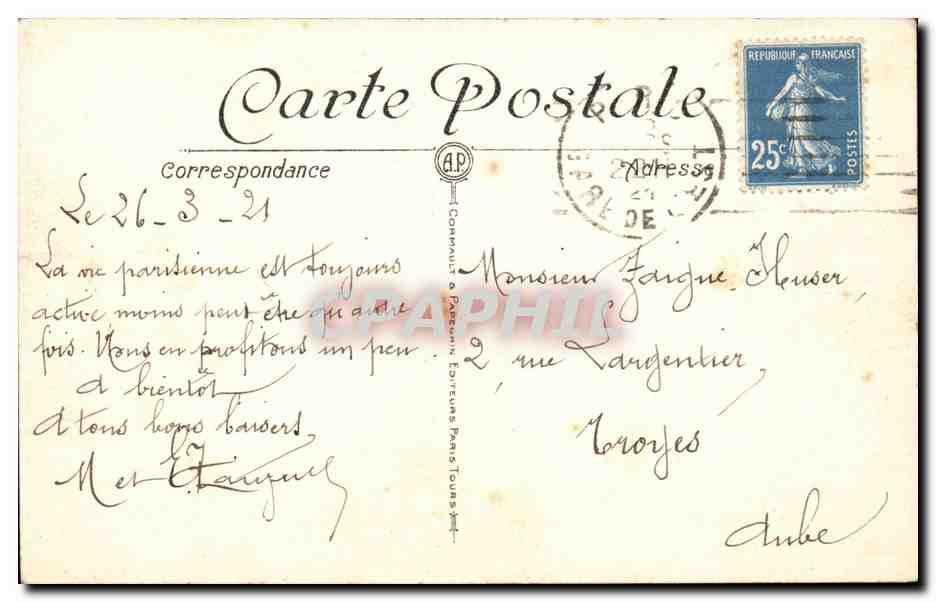 Carte Postale
RÉPUBLIQUE FRANÇAISE
25c
POSTES
Correspondance
A.P.
Adresse
GARE DE L'EST
Le 26 - 3 - 21
La vie parisienne est toujours
active moins peut être qu'autre
fois. Nous en profitons un peu.
à bientôt
à tous bons baisers,
M et
Monsieur Zaigue Huser,
2, rue Largentier,
Troyes
Aube
CORMAULT & PAPEGHIN EDITEURS PARIS TOURS
CPAPHIL